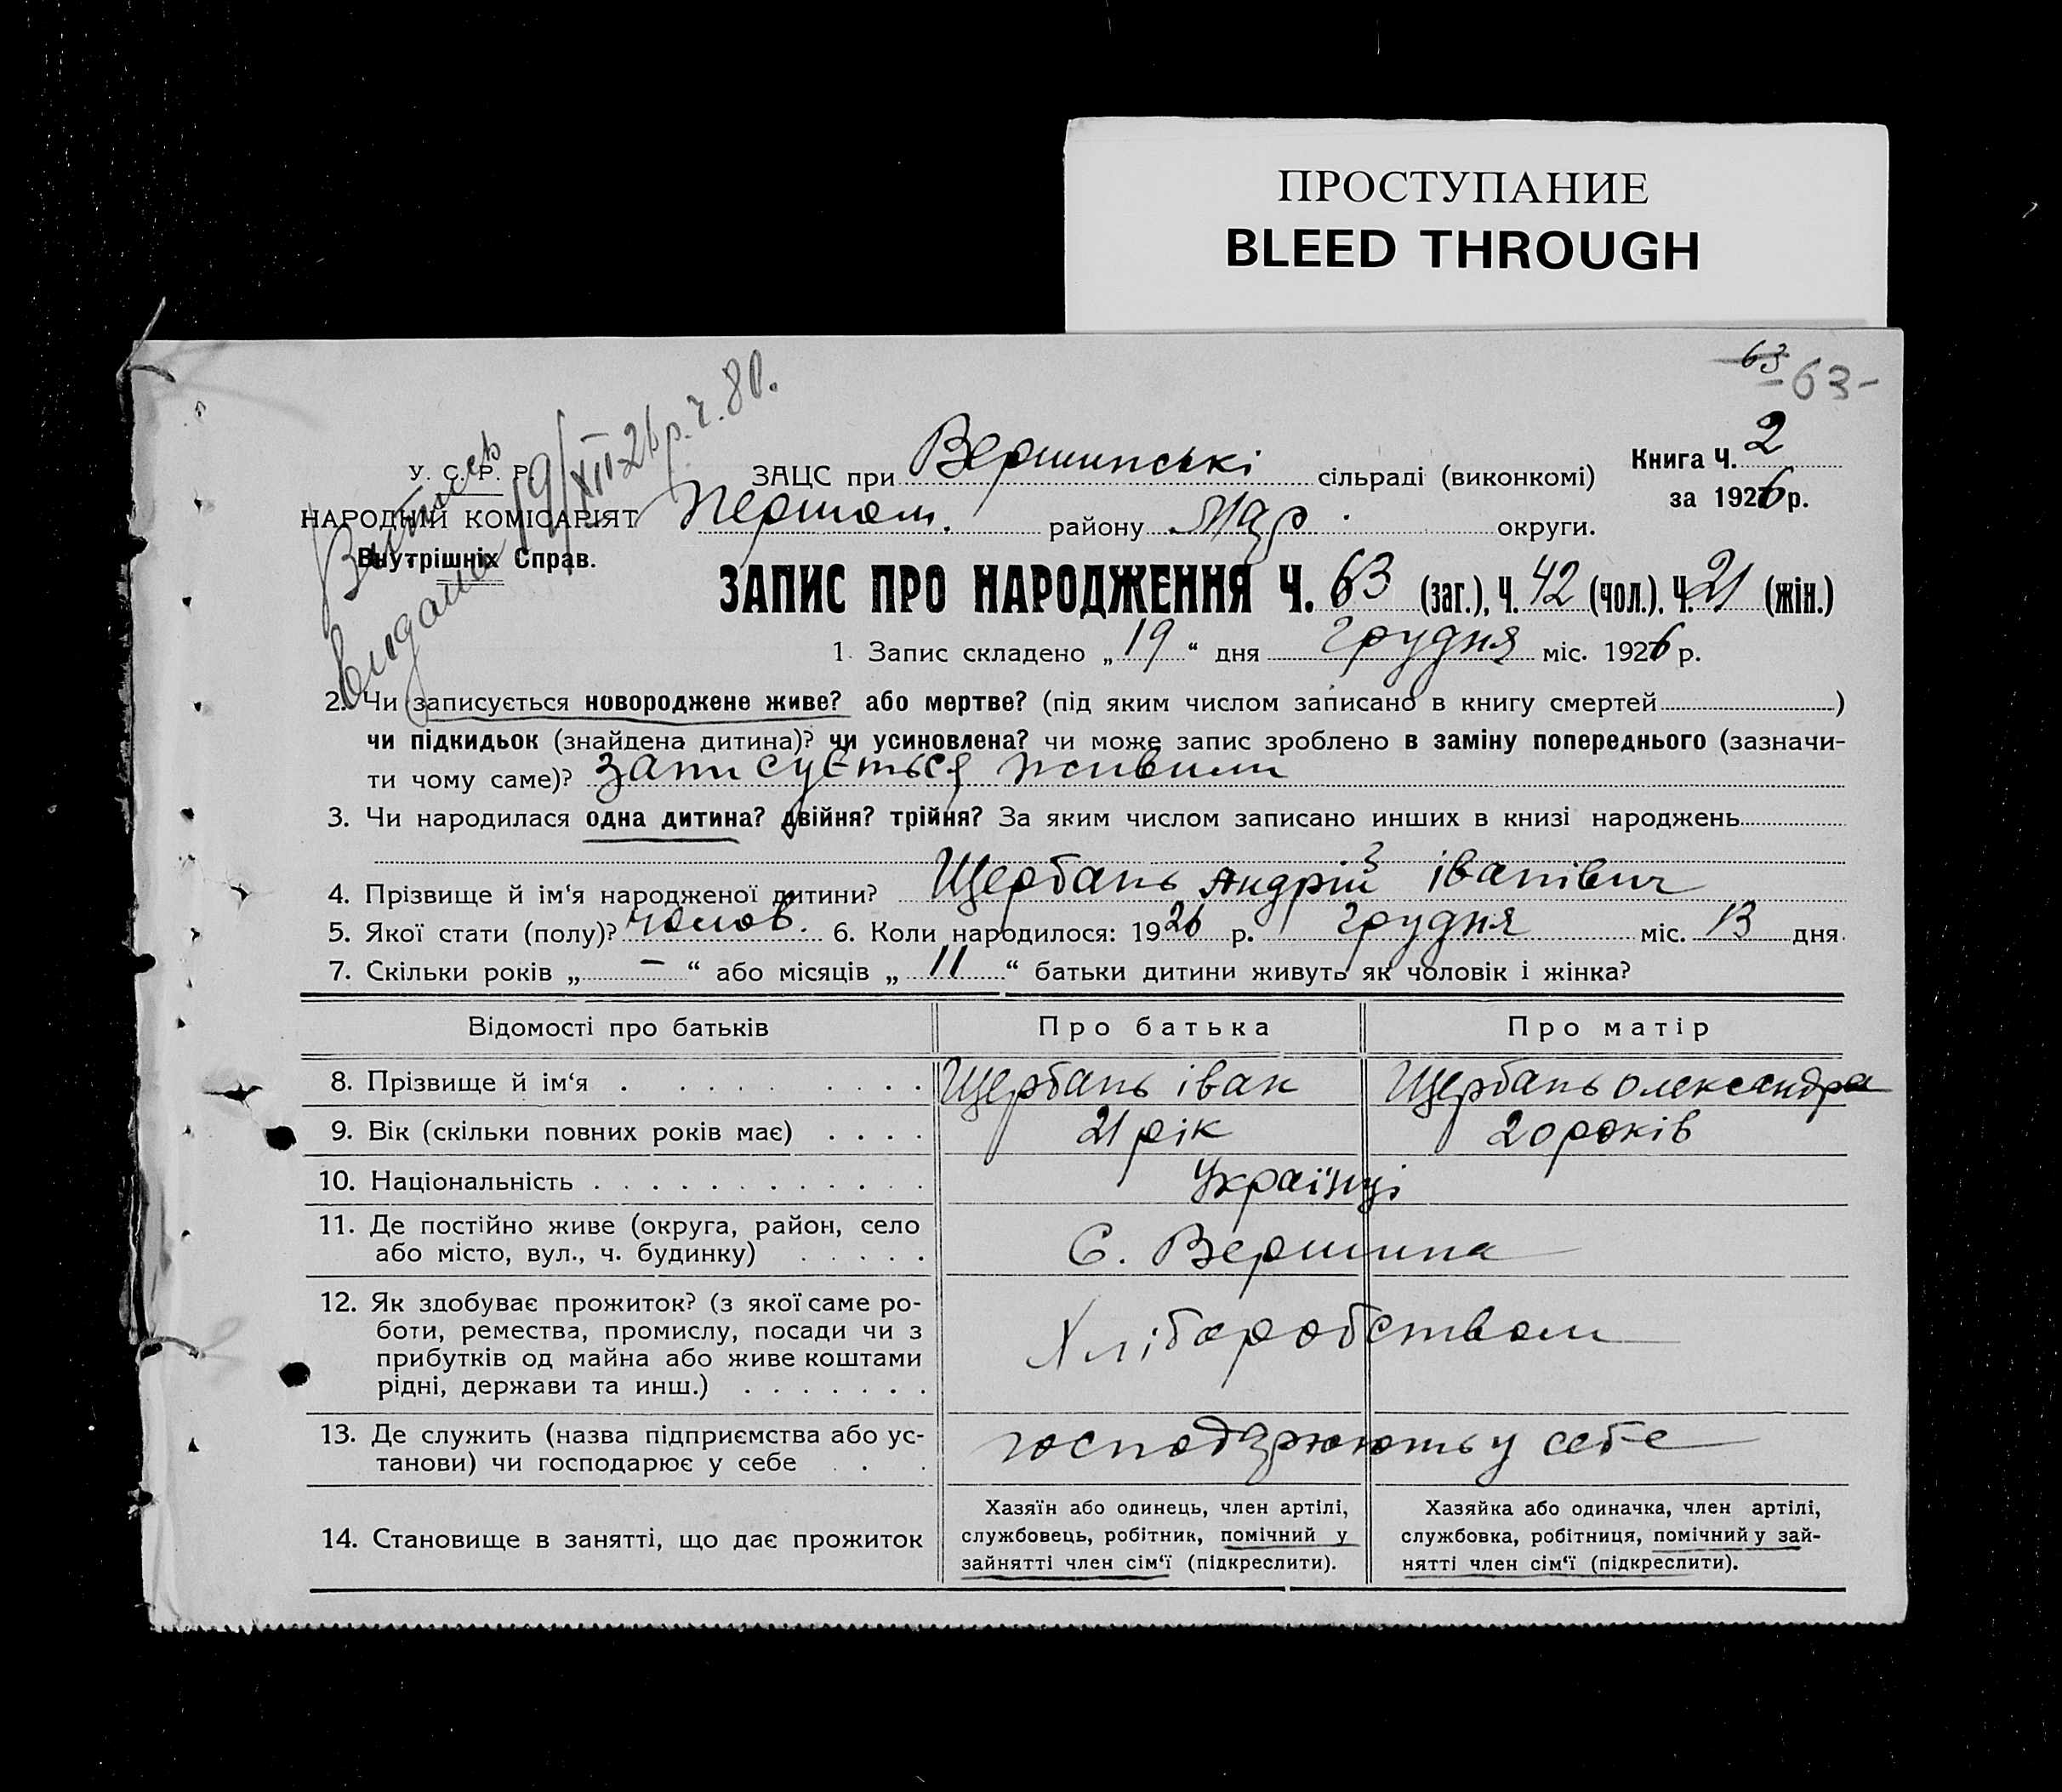 ПРОСТУПАНИЕ
BLEED THROUGH
63
-63-
Витяг
видано 19/XII 26 р. ч. 80.
У. С. Р. Р.
НАРОДНИЙ КОМІСАРІЯТ
Внутрішніх Справ.
ЗАЦС при Вершинські сільраді (виконкомі)
Першом. району Мар. округи.
Книга Ч. 2
за 1926 р.
ЗАПИС ПРО НАРОДЖЕННЯ Ч. 63 (заг.), Ч. 42 (чол.), Ч. 21 (жін.)
1. Запис складено „19“ дня грудня міс. 1926 р.
2. Чи записується новороджене живе? або мертве? (під яким числом записано в книгу смертей )
чи підкидьок (знайдена дитина)? чи усиновлена? чи може запис зроблено в заміну попереднього (зазначи-
ти чому саме)? записується живим
3. Чи народилася одна дитина? двійня? трійня? За яким числом записано инших в книзі народжень
4. Прізвище й ім‘я народженої дитини? Щербань Андрій іванівич
5. Якої стати (полу)? чолов. 6. Коли народилося: 1926 р. грудня міс. 13 дня.
7. Скільки років „ — “ або місяців „ 11 “ батьки дитини живуть як чоловік і жінка?
Відомості про батьків Про батька Про матір
8. Прізвище й ім‘я Щербань іван Щербань олександра
9. Вік (скільки повних років має) 21 рік 20 років
10. Національність Українці
11. Де постійно живе (округа, район, село
або місто, вул., ч. будинку)
С. Вершина
12. Як здобуває прожиток? (з якої саме ро-
боти, ремества, промислу, посади чи з
прибутків од майна або живе коштами
рідні, держави та инш.)
Хліборобством
13. Де служить (назва підприємства або ус-
танови) чи господарює у себе
господарюють у себе
14. Становище в занятті, що дає прожиток
Хазяїн або одинець, член артілі,
службовець, робітник, помічний у
зайнятті член сім‘ї (підкреслити).
Хазяйка або одиначка, член артілі,
службовка, робітниця, помічний у зай-
нятті член сім‘ї (підкреслити).